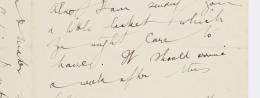 Also I am sending you
a little basket which
you might care to
have. It should arrive
a week after this